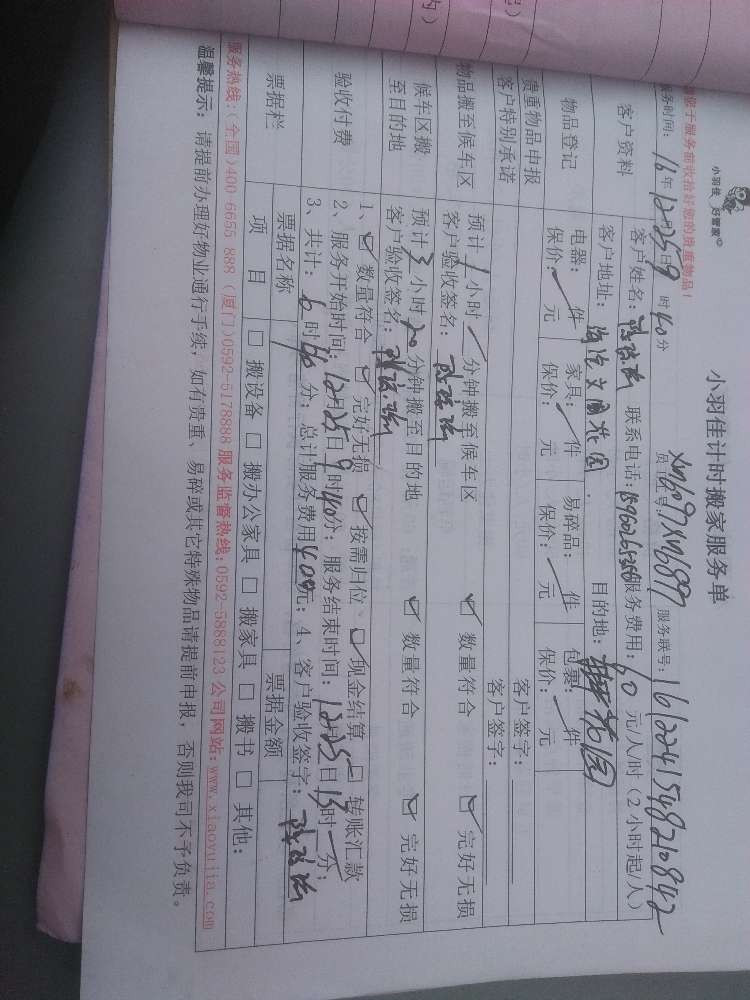 小羽佳 好管家
小羽佳计时搬家服务单
于服务前收拾好您的贵重物品!
务时间: 16年12月25日9时40分 员工证号: XM6097XM6897 服务联号: 1612241548210842
客户资料
客户姓名: 联系电话: 服务费用: 60元/人/时(2小时起/人)
客户地址: 文圃花园 目的地: 花园
物品登记
电器: 件 家具: 件 易碎品: 件 包裹: 件
保价: 元 保价: 元 保价: 元 保价: 元
贵重物品申报 客户签字:
客户特别承诺 客户签字:
物品搬至候车区
预计1小时 分钟搬至候车区 ☑ 数量符合 ☑ 完好无损
客户验收签名:
候车区搬至目的地
预计3小时20分钟搬至目的地 ☑ 数量符合 ☑ 完好无损
客户验收签名:
验收付费
1、☑ 数量符合 ☑ 完好无损 ☑ 按需归位、☑ 现金结算 □ 转账汇款
2、服务开始时间: 12月25日9时40分; 服务结束时间: 12月25日13时 分;
3、共计: 6时40分; 总计服务费用400元; 4、客户验收签字:
票据栏
票据名称 票据金额
项 目 □ 搬设备 □ 搬办公家具 □ 搬家具 □ 搬书 □ 其他:
服务热线:(全国)400 6655 888 (厦门)0592-5178888 服务监督热线:0592-5888123 公司网站:www.xiaoyujia.com
温馨提示: 请提前办理好物业通行手续, 如有贵重、易碎或其它特殊物品请提前申报, 否则我司不予负责。